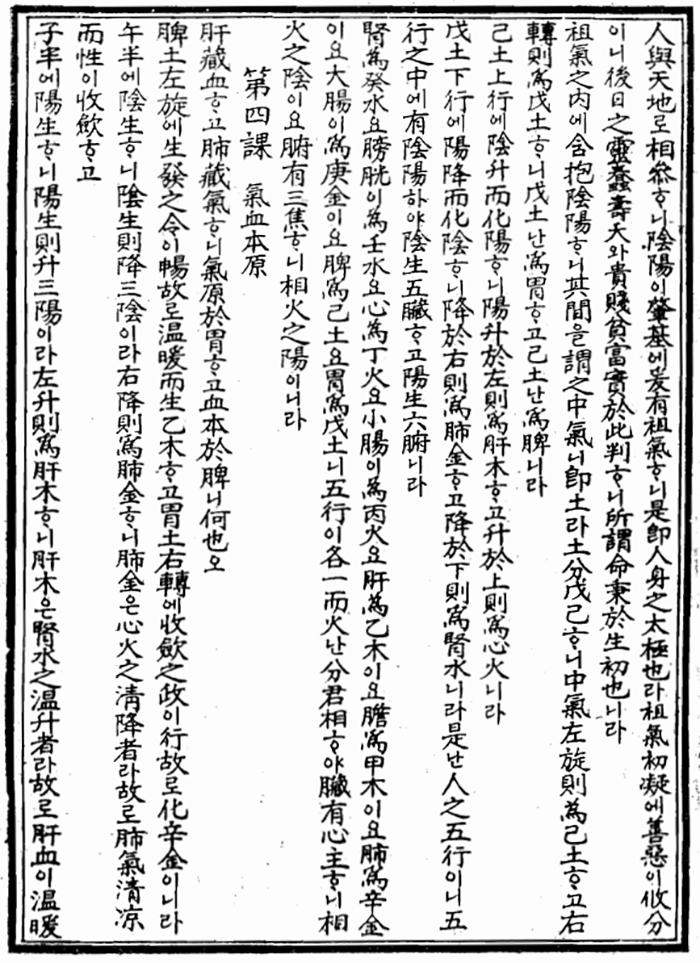 人與天地로相參ᄒᆞ니陰陽이肇基에爰有祖氣ᄒᆞ니是卽人身之太極也라祖氣初凝에善惡이攸分
이니後日之靈蠢壽夭와貴賤貧富實於此判ᄒᆞ니所謂命秉於生初也니라
祖氣之內에含抱陰陽ᄒᆞ니其間을謂之中氣니卽土라土分戊己ᄒᆞ니中氣左旋則爲己土ᄒᆞ고右
轉則爲戊土ᄒᆞ니戊土난爲胃ᄒᆞ고己土난爲脾니라
己土上行에陰升而化陽ᄒᆞ니陽升於左則爲肝木ᄒᆞ고升於上則爲心火니라
戊土下行에陽降而化陰ᄒᆞ니降於右則爲肺金ᄒᆞ고降於下則爲腎水니라是난人之五行이니五
行之中에有陰陽하야陰生五臟ᄒᆞ고陽生六腑니라
腎爲癸水요膀胱이爲壬水요心爲丁火요小腸이爲丙火요肝爲乙木이요膽爲甲木이요肺爲辛金
이요大腸이爲庚金이요脾爲己土요胃爲戊土니五行이各一而火난分君相ᄒᆞ야臟有心主ᄒᆞ니相
火之陰이요腑有三焦ᄒᆞ니相火之陽이니라
第四課 氣血本原
肝藏血ᄒᆞ고肺藏氣ᄒᆞ니氣原於胃ᄒᆞ고血本於脾니何也오
脾土左旋에生發之令이暢故로溫暖而生乙木ᄒᆞ고胃土右轉에收斂之政이行故로化辛金이니라
午半에陰生ᄒᆞ니陰生則降三陰이라右降則爲肺金ᄒᆞ니肺金은心火之淸降者라故로肺氣淸凉
而性이收斂ᄒᆞ고
子半에陽生ᄒᆞ니陽生則升三陽이라左升則爲肝木ᄒᆞ니肝木은腎水之溫升者라故로肝血이溫暖